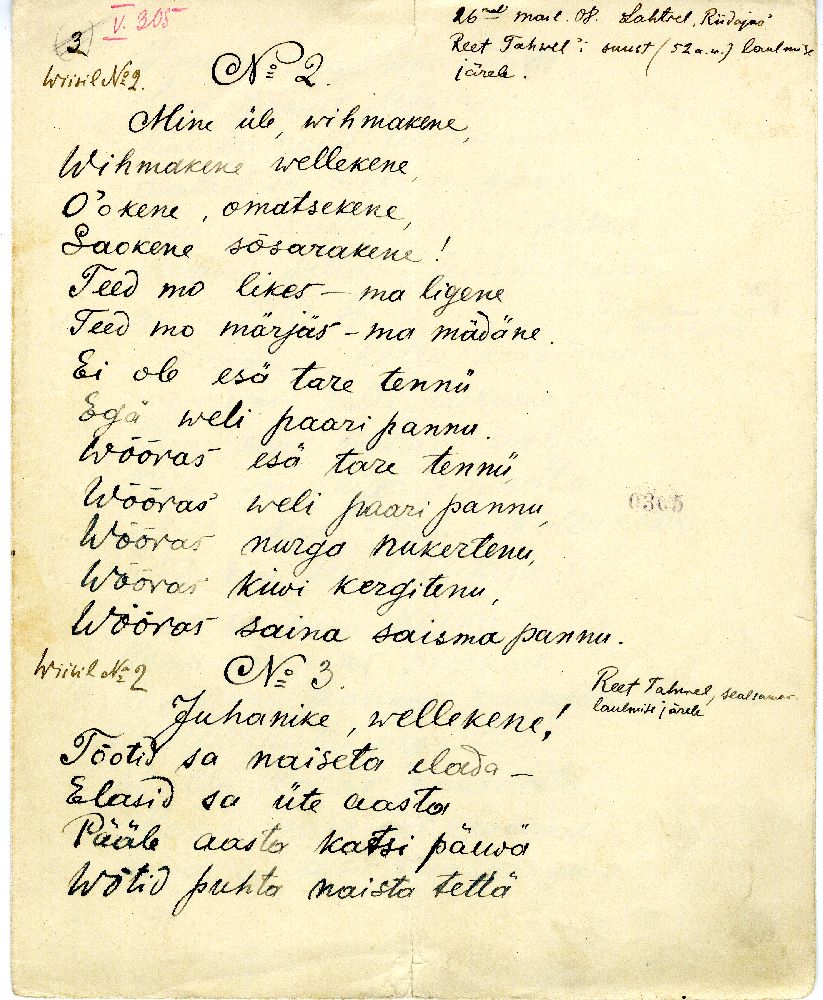 V. 305
3
26nel mail. 08. Lahtrel, Riidajas
Reet Tahwel'i suust (52 a. w.) laulmise
järele.
Wiisil № 2.
№ 2.
Mine üle, wihmakene,
Wihmakene wellekene,
O'okene, omatsekene,
Laokene sõsarakene!
Teed mo likes – ma ligene
Teed mo märjäs – ma mädäne.
Ei ole esä tare tennü
Egä weli paari pannu.
Wõõras esä tare tennü,
Wõõras weli paari pannu,
0365
Wõõras nurga nukertenu,
Wõõras kiwi kergitenu,
Wõõras saina saisma pannu.
Wiisil № 2
№ 3.
Reet Tahwel, sealsamas
laulmise järele
Juhanike, wellekene!
Tõotid sa naiseta elada –
Elasid sa üte aasta
Pääle aasta katsi päiwä
Wõtid puhta naista tettä